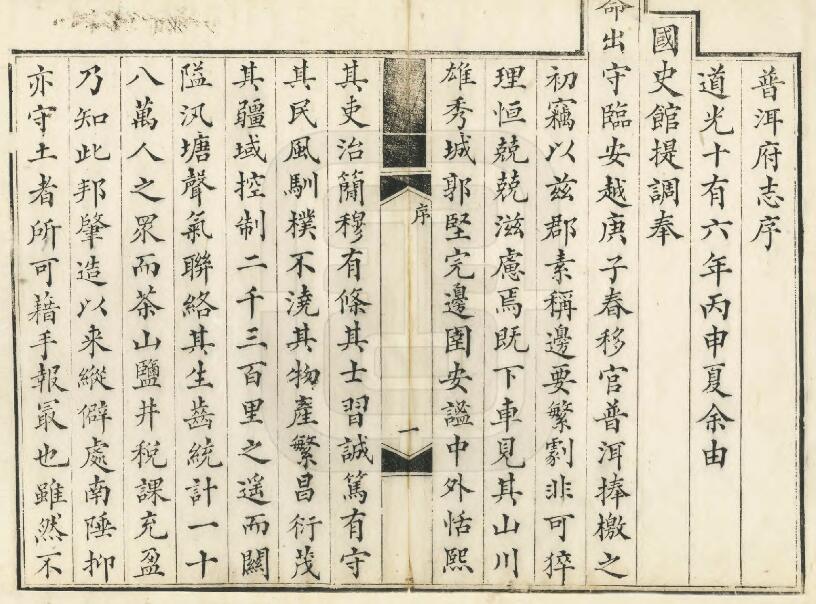 普洱府志序
道光十有六年丙申夏余由
國史館提調奉
命出守臨安越庚子春移官普洱捧檄之
初竊以兹郡素稱邊要繁劇非可猝
理恒兢兢滋慮焉既下車見其山川
雄秀城郭堅完邊圉安謐中外恬熙
序
一
其吏治簡穆有條其士習誠篤有守
其民風馴樸不澆其物產繁昌衍茂
其疆域控制二千三百里之遥而關
隘汛塘聲氣聯絡其生齒統計一十
八萬人之眾而茶山鹽井稅課充盈
乃知此邦肇造以来縱僻處南陲抑
亦守土者所可藉手報最也雖然不